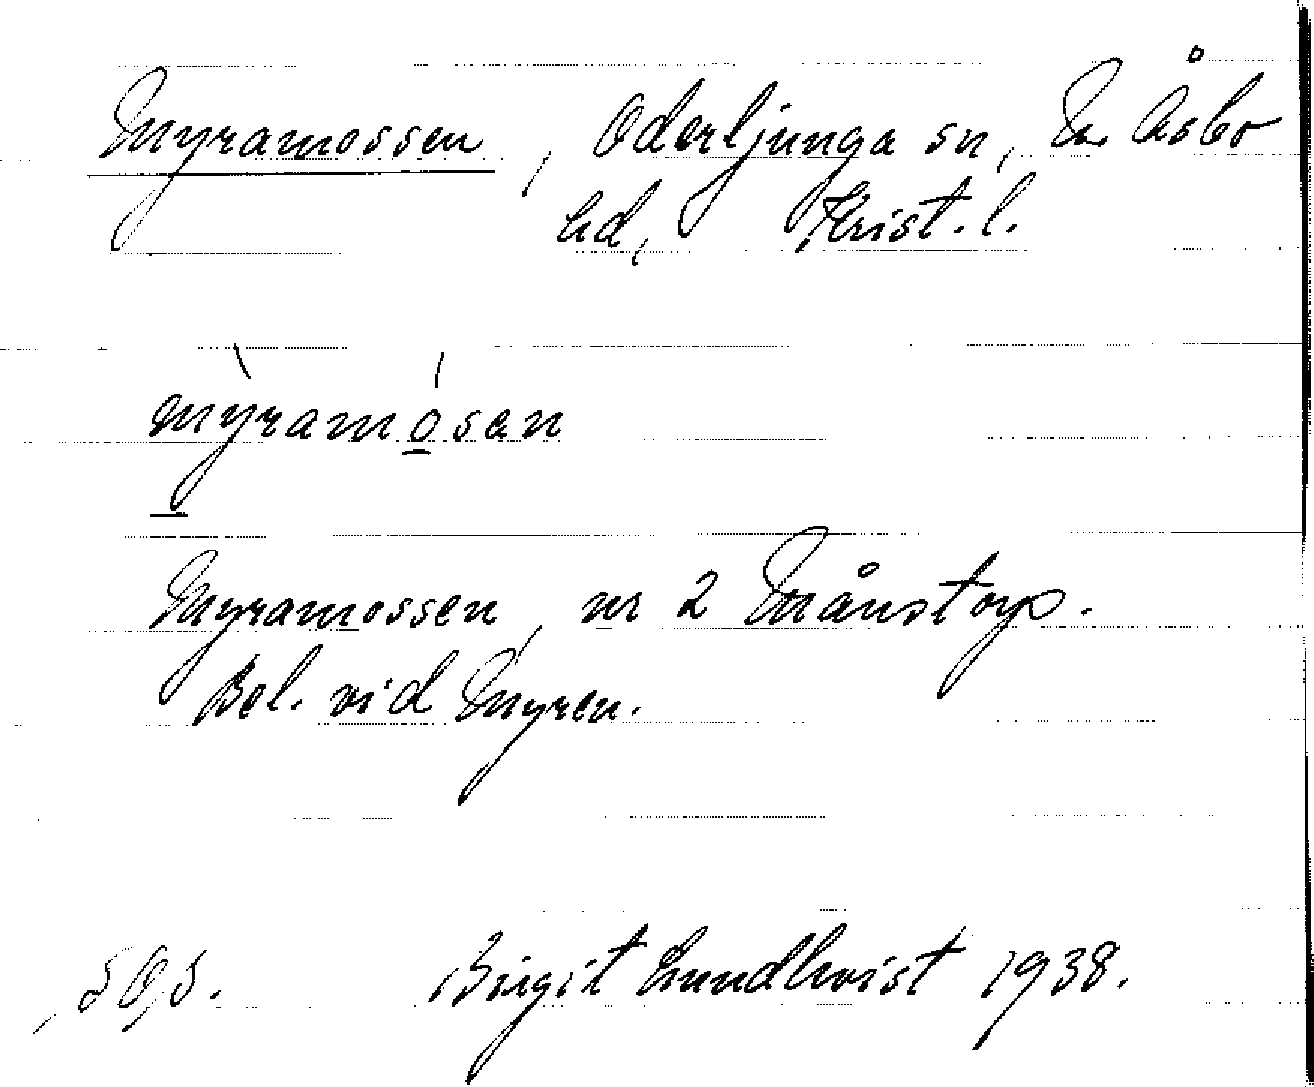 Myramossen, Oderljunga sn, N. Åsbo
hd, Krist. l.
mỳramósan
Myramossen, nr 2 Månstorp.
Bel. vid Myren.
Birgit Lundkvist 1938.